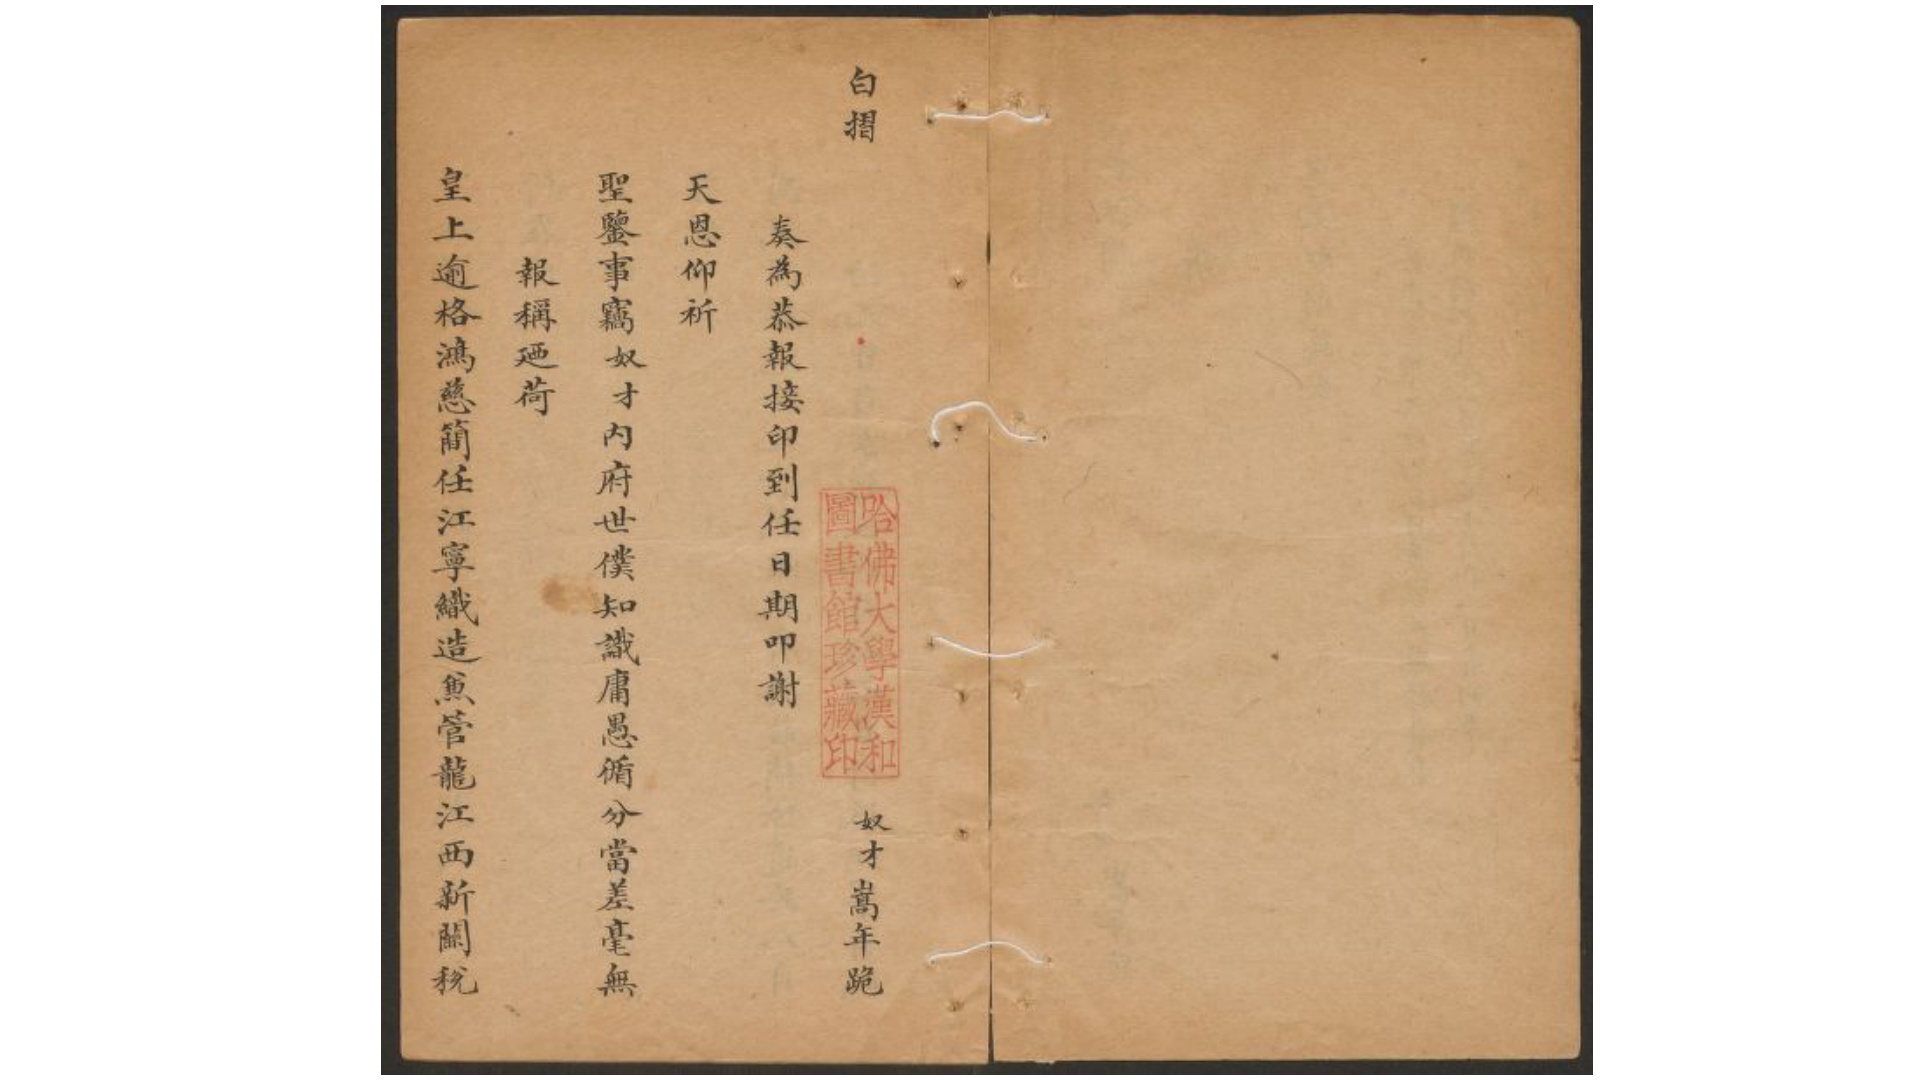 白摺
奴才嵩年跪
奏為恭報接印到任日期叩謝
天恩仰祈
聖鑒事竊奴才內府世僕知識庸愚循分當差毫無
報稱廼荷
皇上逾格鴻慈簡任江寧織造兼管龍江西新關稅
哈佛大學漢和
圖書館珍藏印